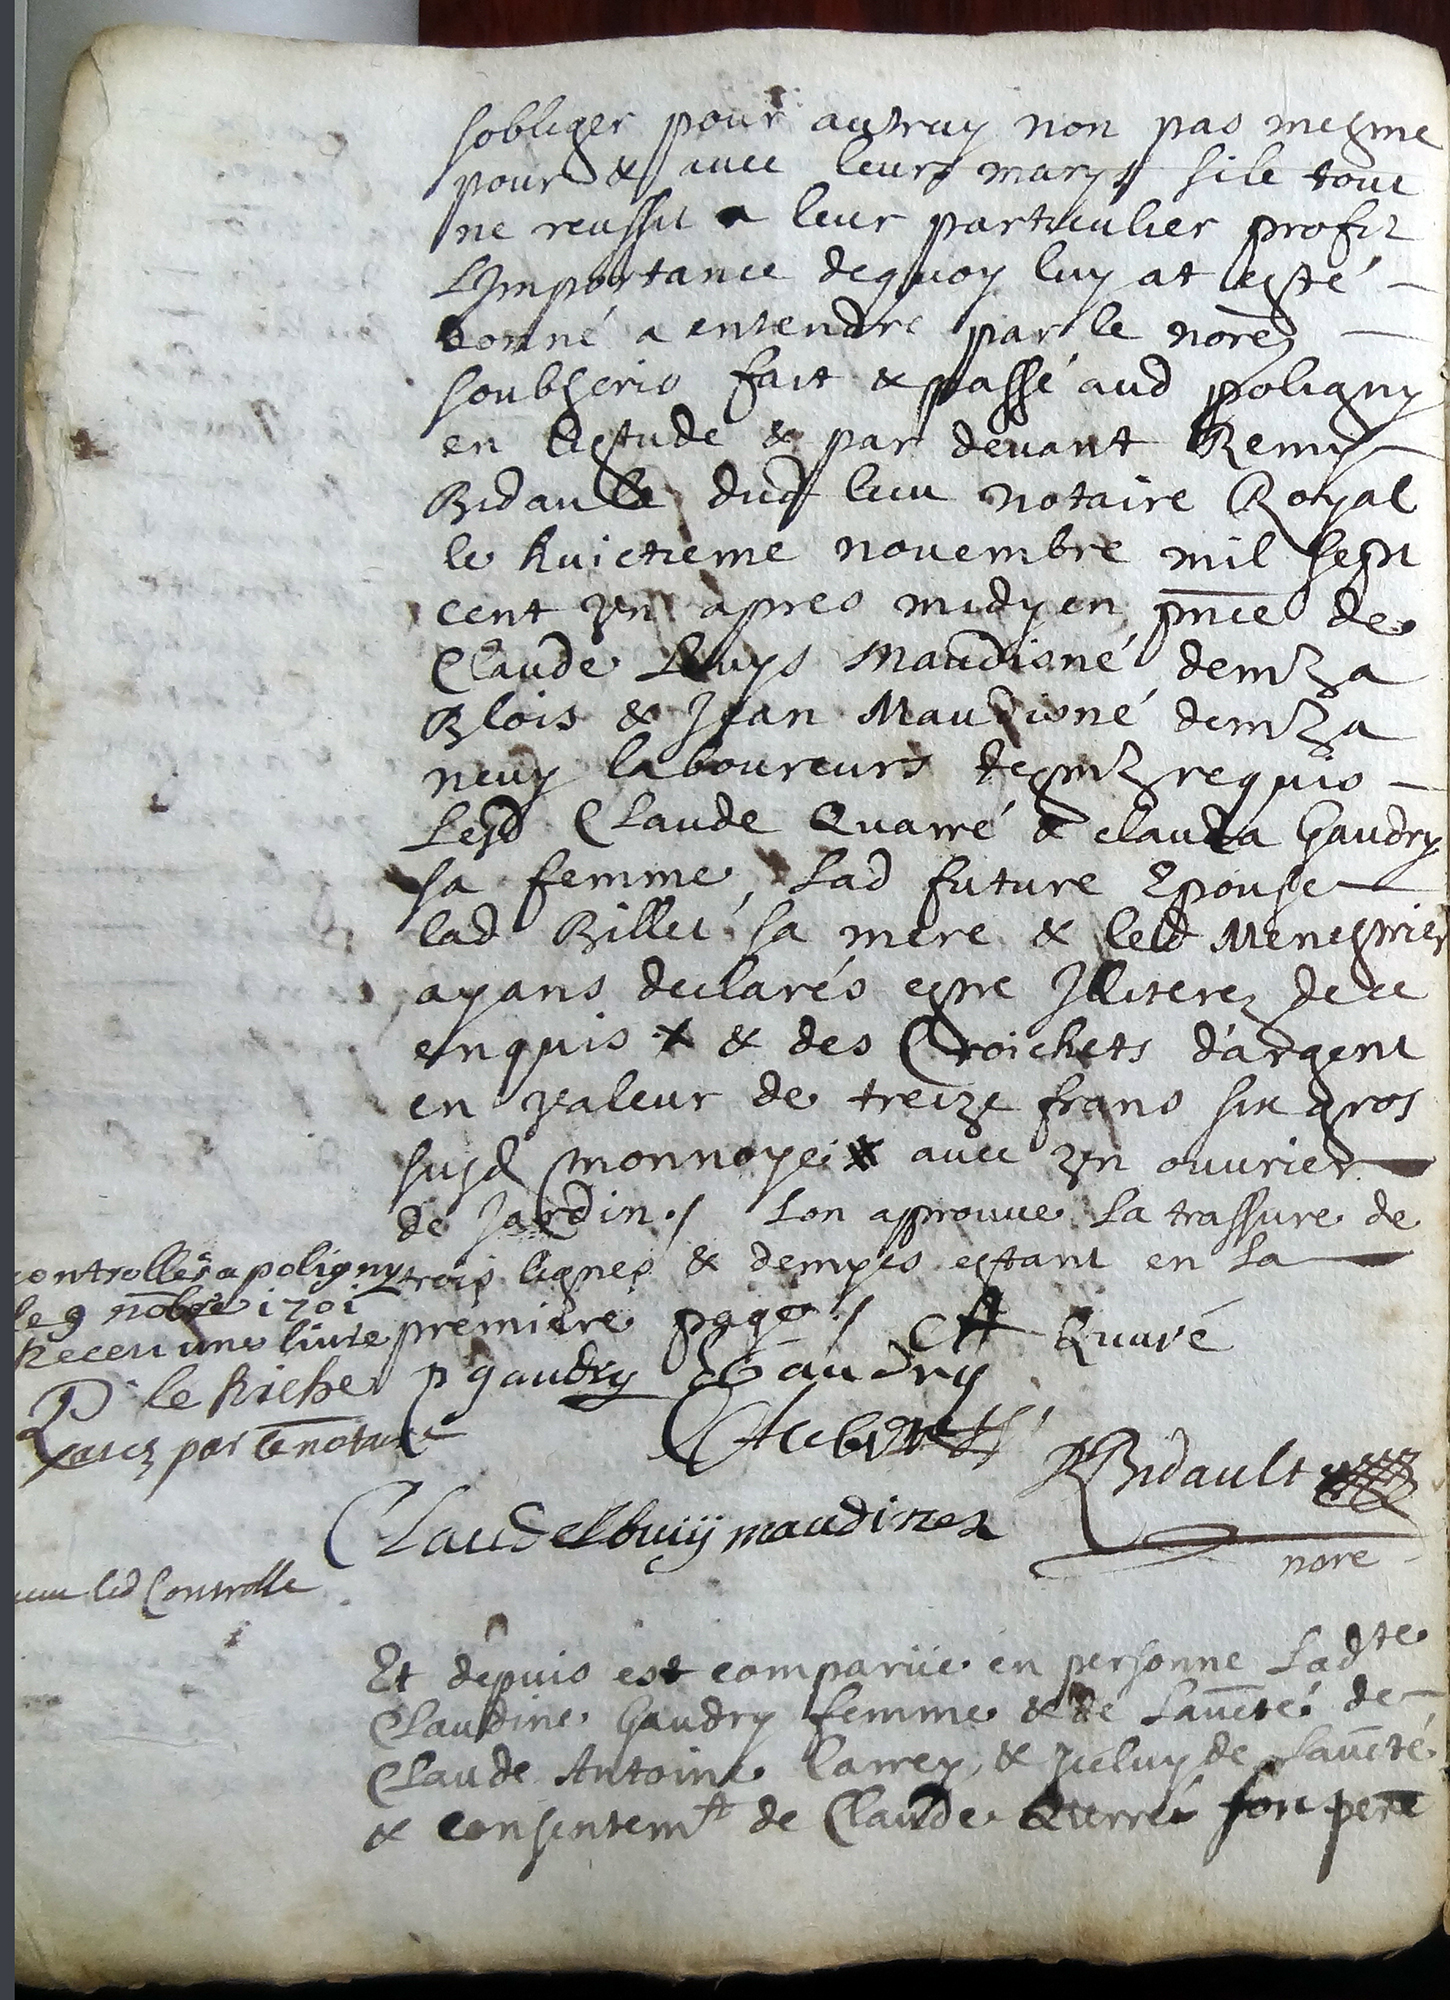 sobliger pour autruy non pas mesme
pour & avec leurs marys si le tout
ne reussit a leur particulier profit
L'Importance dequoy luy at esté
donné a entendre par le nore
soubscrio fait & passé aud poligny
en lestude & par devant Remy
Bidault dud lieu notaire Royal
le huictieme novembre mil sept
cent vn apres midy en pnce de
Claude Louys Maudioné demt a
Blois & Jean Maudioné demt a
nevy laboureurs tesmt requis
Lesd Claude Quarré & clauda Gaudry
sa femme, Lad future Epouse
lad Billet sa mere & led Menesmier
ayans declarés estre Illiterez de ce
enquis x & des Croichets d'argent
en valeur de treize frans six gros
susd monnoye x avec vn ouvrier
de Jardin ./ Lon approuve La trassure de
trois lignes & demyes estant en la
premiere page ./ CA Quaré
controllés a poligny
le 9 nobre 1701
Receu une livre
le Riche
payez par le notaire
p gaudry Gaudry
RBidault
Claudelouij maudinez
nore
led Controlle
Et depuis est comparüe en personne Ladte
Claudine Gaudry femme & de Lautté de
Claude Antoine Carrey, & Iceluy de Lautté
& consentemt de Claude Querré son pere